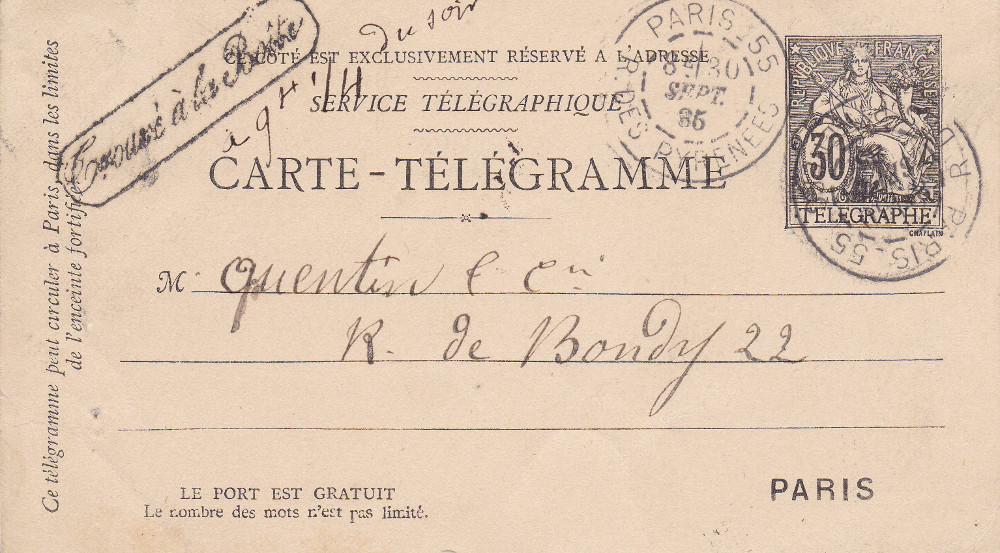 Trouvé à la Boîte
du soir
à 9H
CE CÔTÉ EST EXCLUSIVEMENT RÉSERVÉ A L'ADRESSE
SERVICE TÉLÉGRAPHIQUE
CARTE-TÉLÉGRAMME
M Quentin & Cie
R. de Bondy 22
LE PORT EST GRATUIT
Le nombre des mots n'est pas limité.
PARIS
Ce télégramme peut circuler à Paris, dans les limites
de l'enceinte fortifiée.
PARIS_55
8E/30
SEPT.
86
R. DES PYRENEES
REPUBLIQUE FRANÇAISE
30
TELEGRAPHE
CHAPLAIN
PARIS_55
R. D